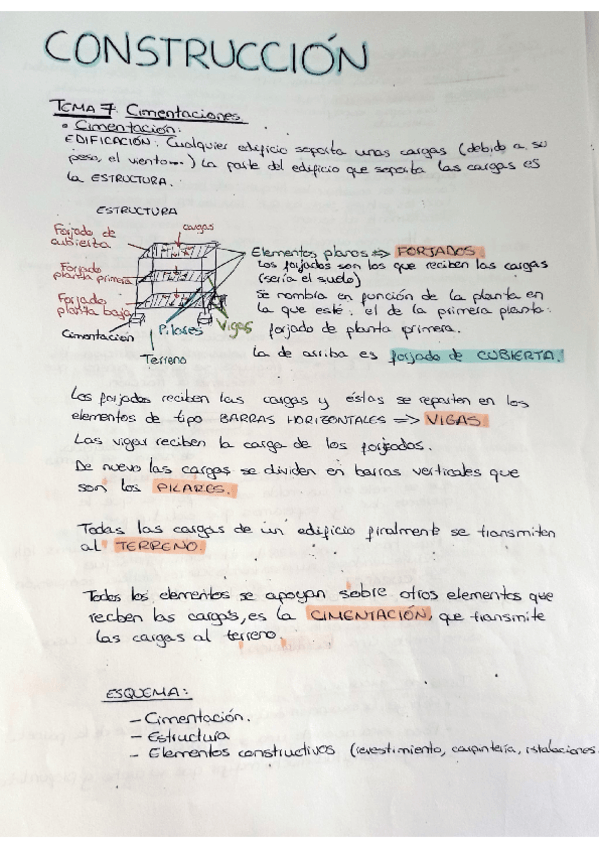 CONSTRUCCIÓN
TEMA 7. Cimentaciones
• Cimentación:
EDIFICACIÓN: Cualquier edificio soporta unas cargas (debido a su
peso, el viento...) La parte del edificio que soporta las cargas es
la ESTRUCTURA.
ESTRUCTURA
Forjado de
cubierta
cargas
Forjado
planta primera
Forjado
planta baja
Cimentación
Pilares
Vigas
Terreno
Elementos planos => FORJADOS
Los forjados son los que reciben las cargas
(sería el suelo)
Se nombra en función de la planta en
la que esté: el de la primera planta:
forjado de planta primera.
La de arriba es forjado de CUBIERTA.
Los forjados reciben las cargas y éstas se reparten en los
elementos de tipo BARRAS HORIZONTALES => VIGAS
Las vigas reciben la carga de los forjados.
De nuevo las cargas se dividen en barras verticales que
son los PILARES.
Todas las cargas de un edificio finalmente se transmiten
al TERRENO.
Todos los elementos se apoyan sobre otros elementos que
reciben las cargas, es la CIMENTACIÓN, que transmite
las cargas al terreno.
ESQUEMA:
- Cimentación.
- Estructura
- Elementos constructivos (revestimiento, carpintería, istalaciones